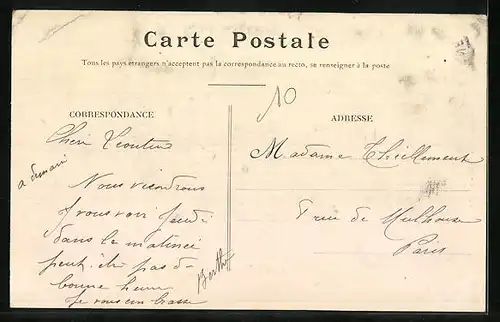 Carte Postale
Tous les pays étrangers n'acceptent pas la correspondance au recto, se renseigner à la poste
10
CORRESPONDANCE
ADRESSE
a demain
Nous viendrons
vous voir jeudi
dans la matinée
peut être pas d-
bonne heure
Je vous em brasse
Berthe
Madame
7 rue de Mulhouse
Paris